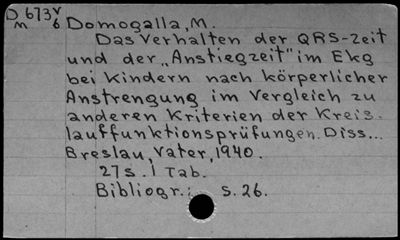 D 673 v/6
m
Domogalla, M.
Das Verhalten der QRS-Zeit
und der „Anstiegzeit" im Ekg
bei Kindern nach körperlicher
Anstrengung im Vergleich zu
anderen Kriterien der Kreis-
lauffunktionsprüfungen. Diss...
Breslau, Vater, 1940.
27 S. 1 Tab.
Bibliogr.: S. 26.